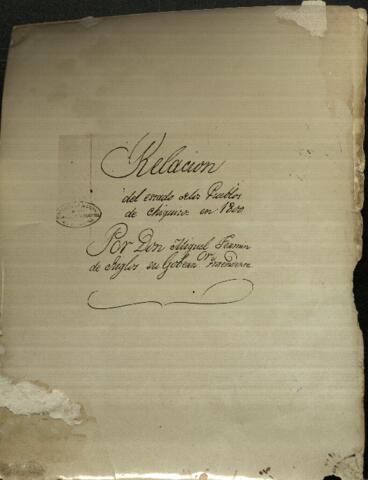 Relacion
del estado de los Pueblos
de chiquitos en 1800
Por Don Miguel Fermin
de Riglos su Gobernor